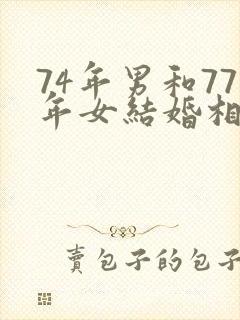 74年男和77
年女結婚相
賣包子的包子